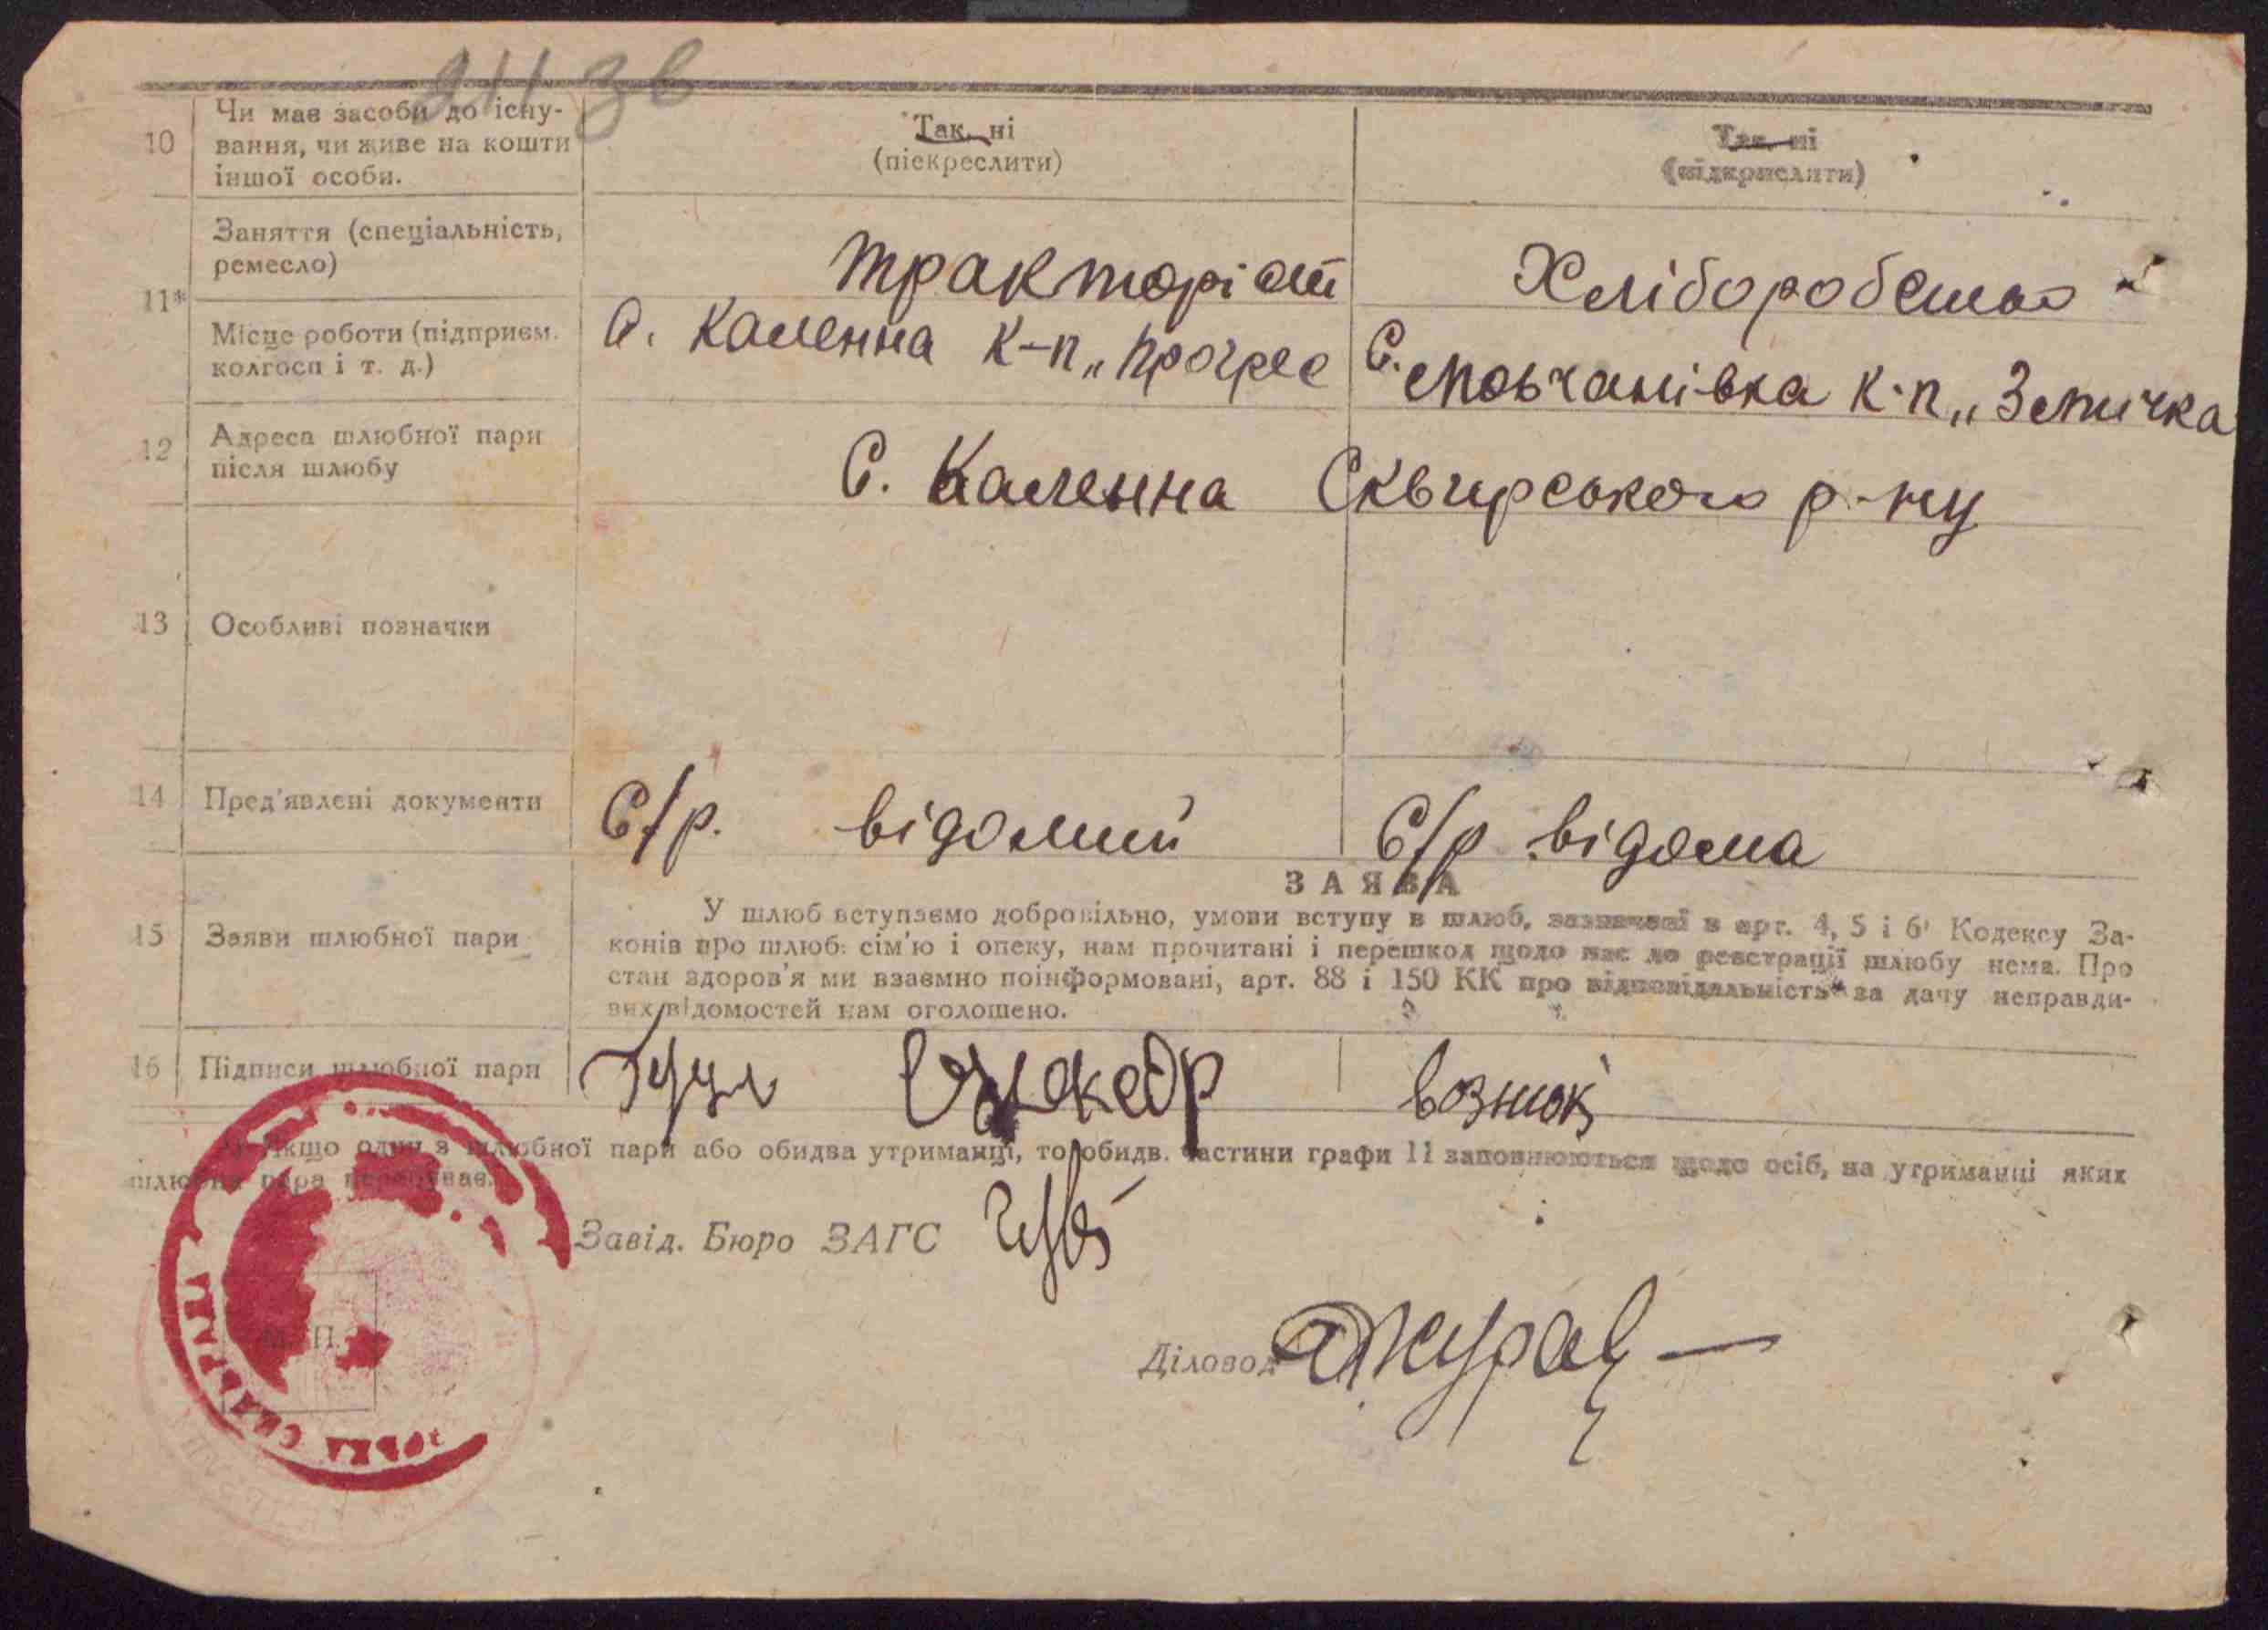 10 Чи має засоби до існу-
вання, чи живе на кошти
іншої особи.
Так, ні
(піскреслити)
Так, ні
(підкрислити)
11*
Заняття (спеціальність,
ремесло)
Тракторіст
Хліборобство
Місце роботи (підприєм.
колгосп і т. д.)
с. Каленна к-п „Прогрес
С. Мовчанівка к-п „Змичка
12 Адреса шлюбної пари
після шлюбу
С. Каленна Сквирського р-ну
13 Особливі позначки
14 Пред'явлені документи
С/р. відомий
С/р відома
ЗАЯВА
15 Заяви шлюбної пари
У шлюб вступаємо добровільно, умови вступу в шлюб, зазначені в арт. 4, 5 і 6 Кодексу За-
конів про шлюб. сім'ю і опеку, нам прочитані і перешкод щодо нас до реєстрації шлюбу нема. Про
стан здоров'я ми взаємно поінформовані, арт. 88 і 150 КК про відповідальність за дачу неправди-
вих відомостей нам оголошено.
16 Підписи шлюбної пари
Вознюк
*) Якщо один з шлюбної пари або обидва утриманці, то обидв. частини графи 11 заповнюються щодо осіб, на утриманні яких
шлюбна пара перебуває.
Завід. Бюро ЗАГС
М. П.
Діловод
СІЛЬРАДА